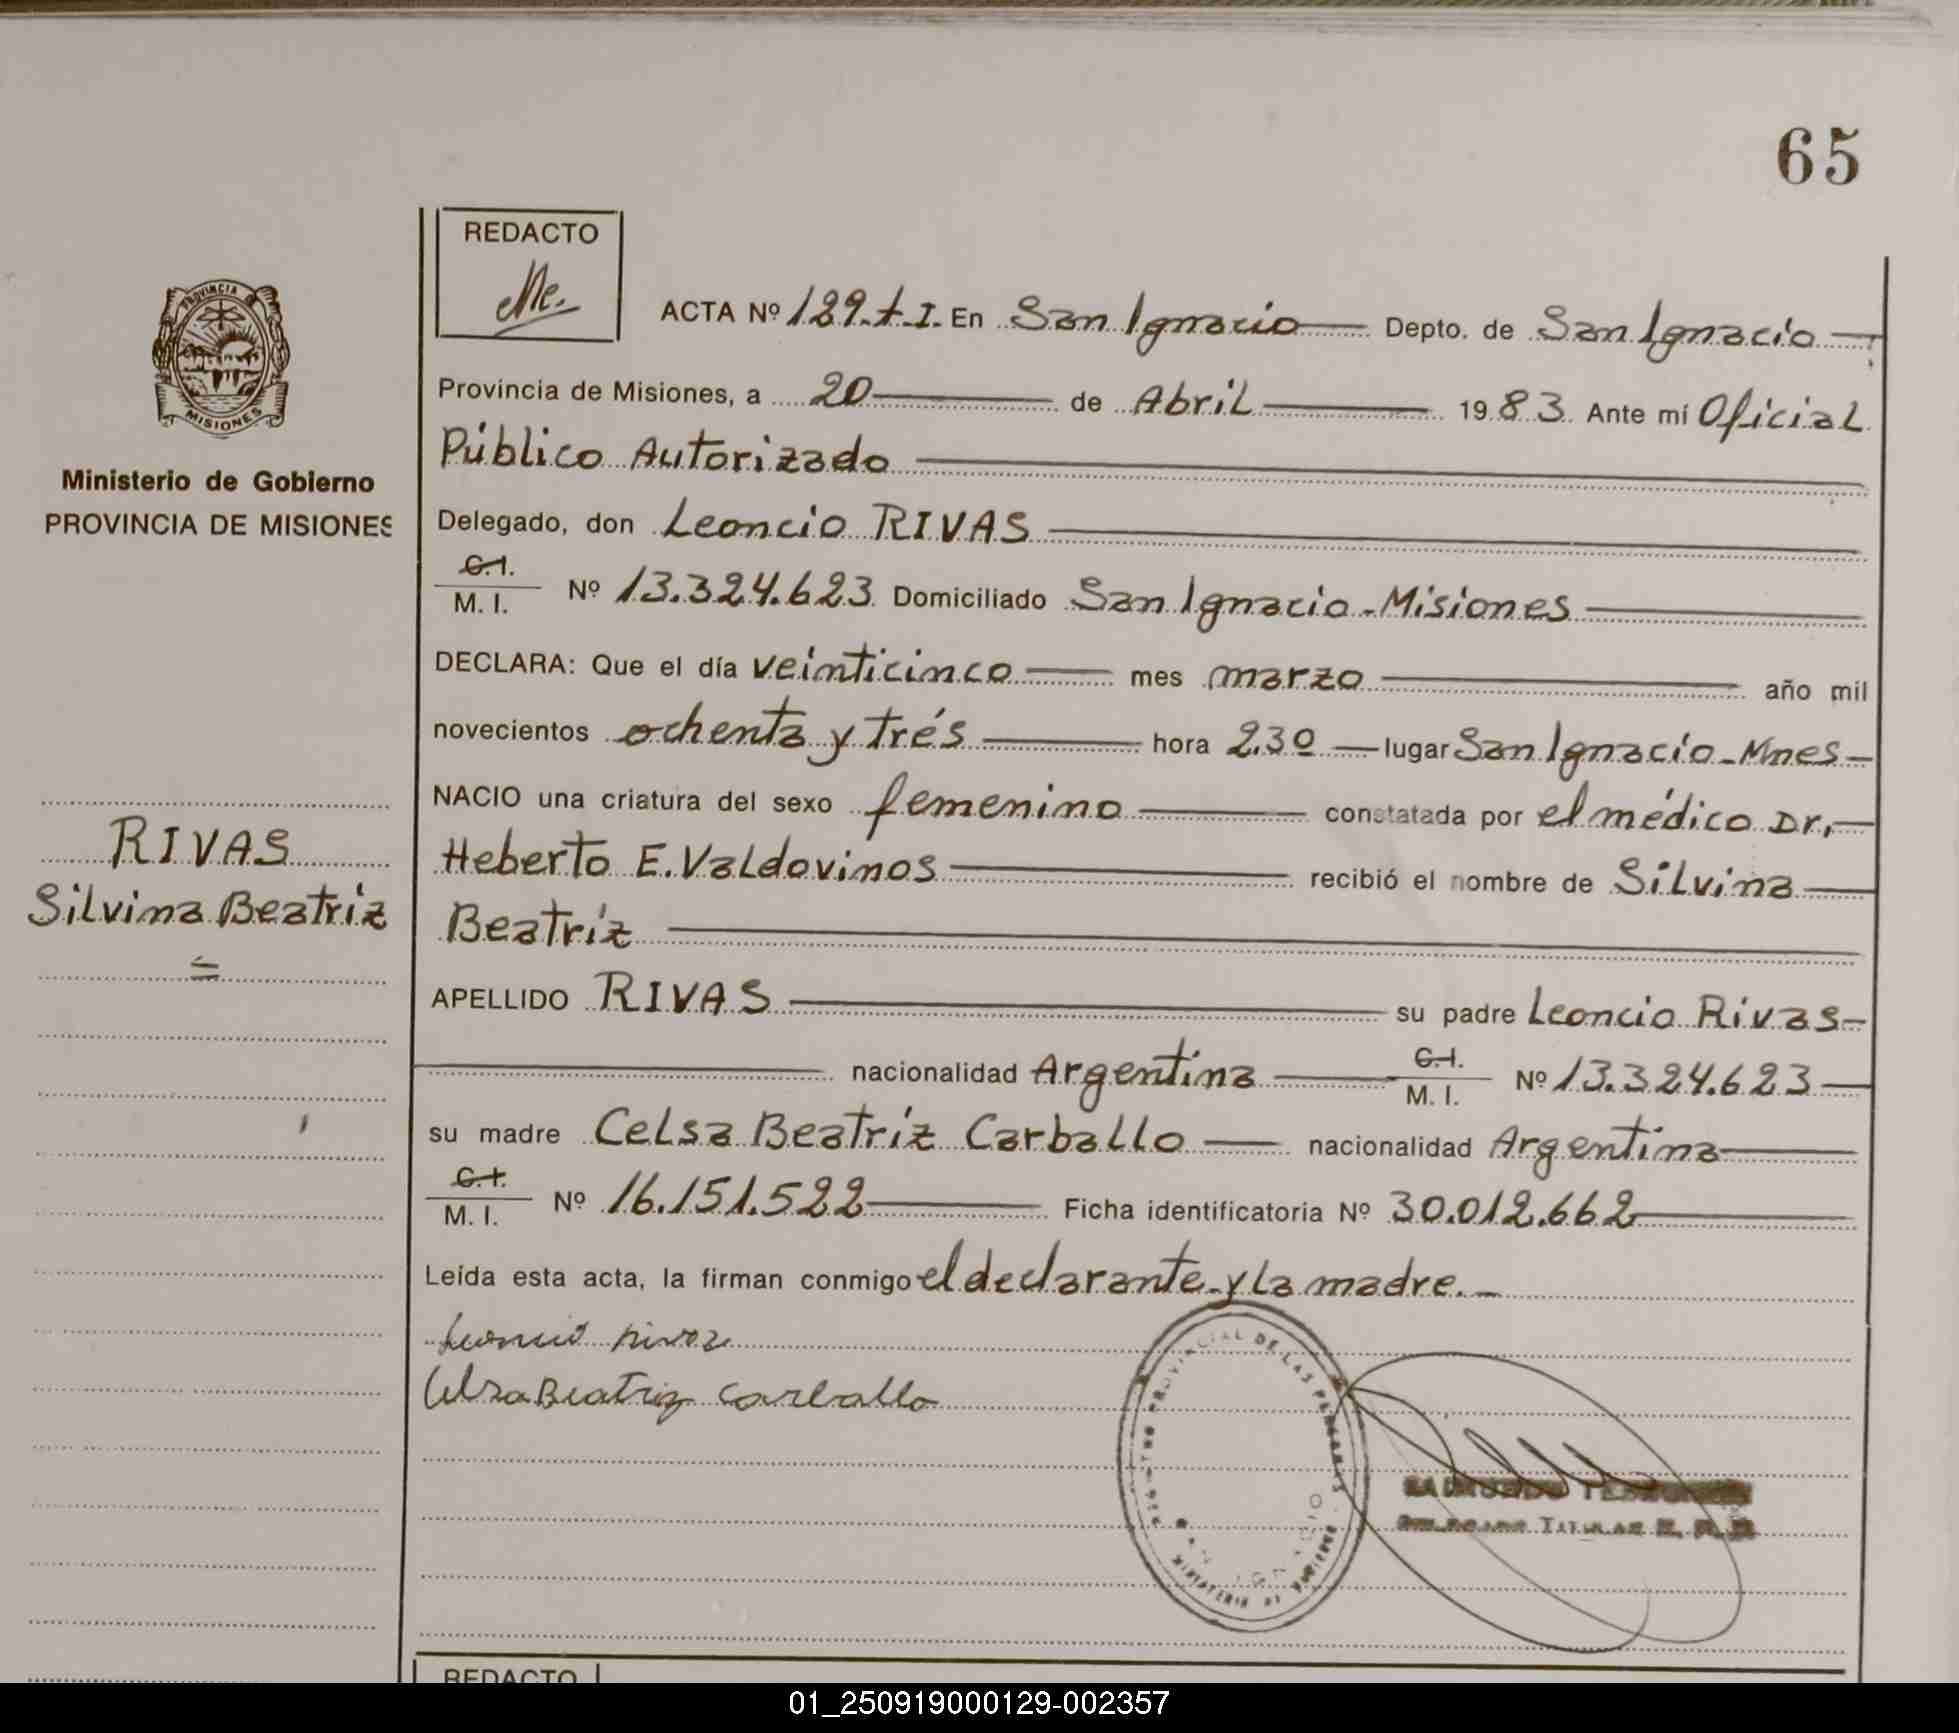 65
REDACTO
PROVINCIA
MISIONES
Ministerio de Gobierno
PROVINCIA DE MISIONES
RIVAS
Silvina Beatriz
=
ACTA Nº 129.t.I. En San Ignacio Depto. de San Ignacio
Provincia de Misiones, a 20 de Abril 1983 Ante mí Oficial
Público Autorizado
Delegado, don Leoncio RIVAS
C.I.
M. I. Nº 13.324.623 Domiciliado San Ignacio-Misiones
DECLARA: Que el día veinticinco mes marzo año mil
novecientos ochenta y trés hora 2.30 lugar San Ignacio-Mnes
NACIO una criatura del sexo femenino constatada por el médico Dr.
Heberto E. Valdovinos recibió el nombre de Silvina
Beatríz
APELLIDO RIVAS su padre Leoncio Rivas
nacionalidad Argentina C.I. M. I. Nº 13.324.623
su madre Celsa Beatríz Carballo nacionalidad Argentina
C.I.
M. I. Nº 16.151.522 Ficha identificatoria Nº 30.012.662
Leída esta acta, la firman conmigo el declarante y la madre.-
Leoncio Rivas
Celsa Beatriz Carballo
PROVINCIAL DE LAS PERSONAS
MINISTERIO DE GOBIERNO
TITULAR
REDACTO
01_250919000129-002357